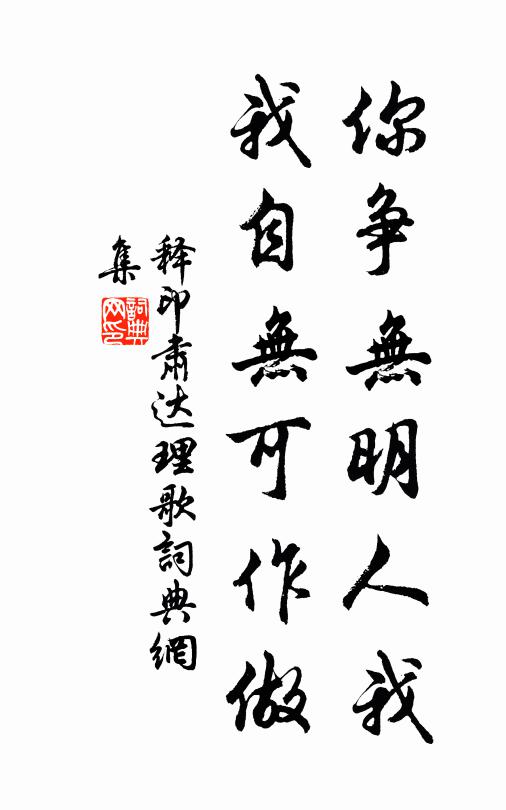 你争無明人我
我自無可作做
释印肃达理歌詞典網
集
詞典网印